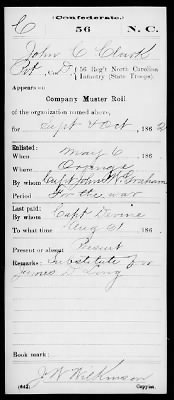 (Confederate.)
C 56 N. C.
John C Clark
Pvt, Co. D, 56 Reg't North Carolina
Infantry (State Troops)
Appears on
Company Muster Roll
of the organization named above,
for Sept & Oct, 1862
Enlisted:
When May 6, 186
Where Orange
By whom Capt John W. Graham
Period For the war
Last paid:
By whom Capt Devine
To what time Aug 31, 186
Present or absent Present
Remarks: Substitute for
James D Long
Book mark:
J W Wilkinson
(642) Copyist.